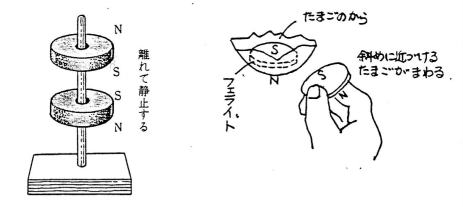 N
S
S
N
離れて静止する
たまごのから
S
N
フェライト
斜めに近づける
たまごがまわる
S
N